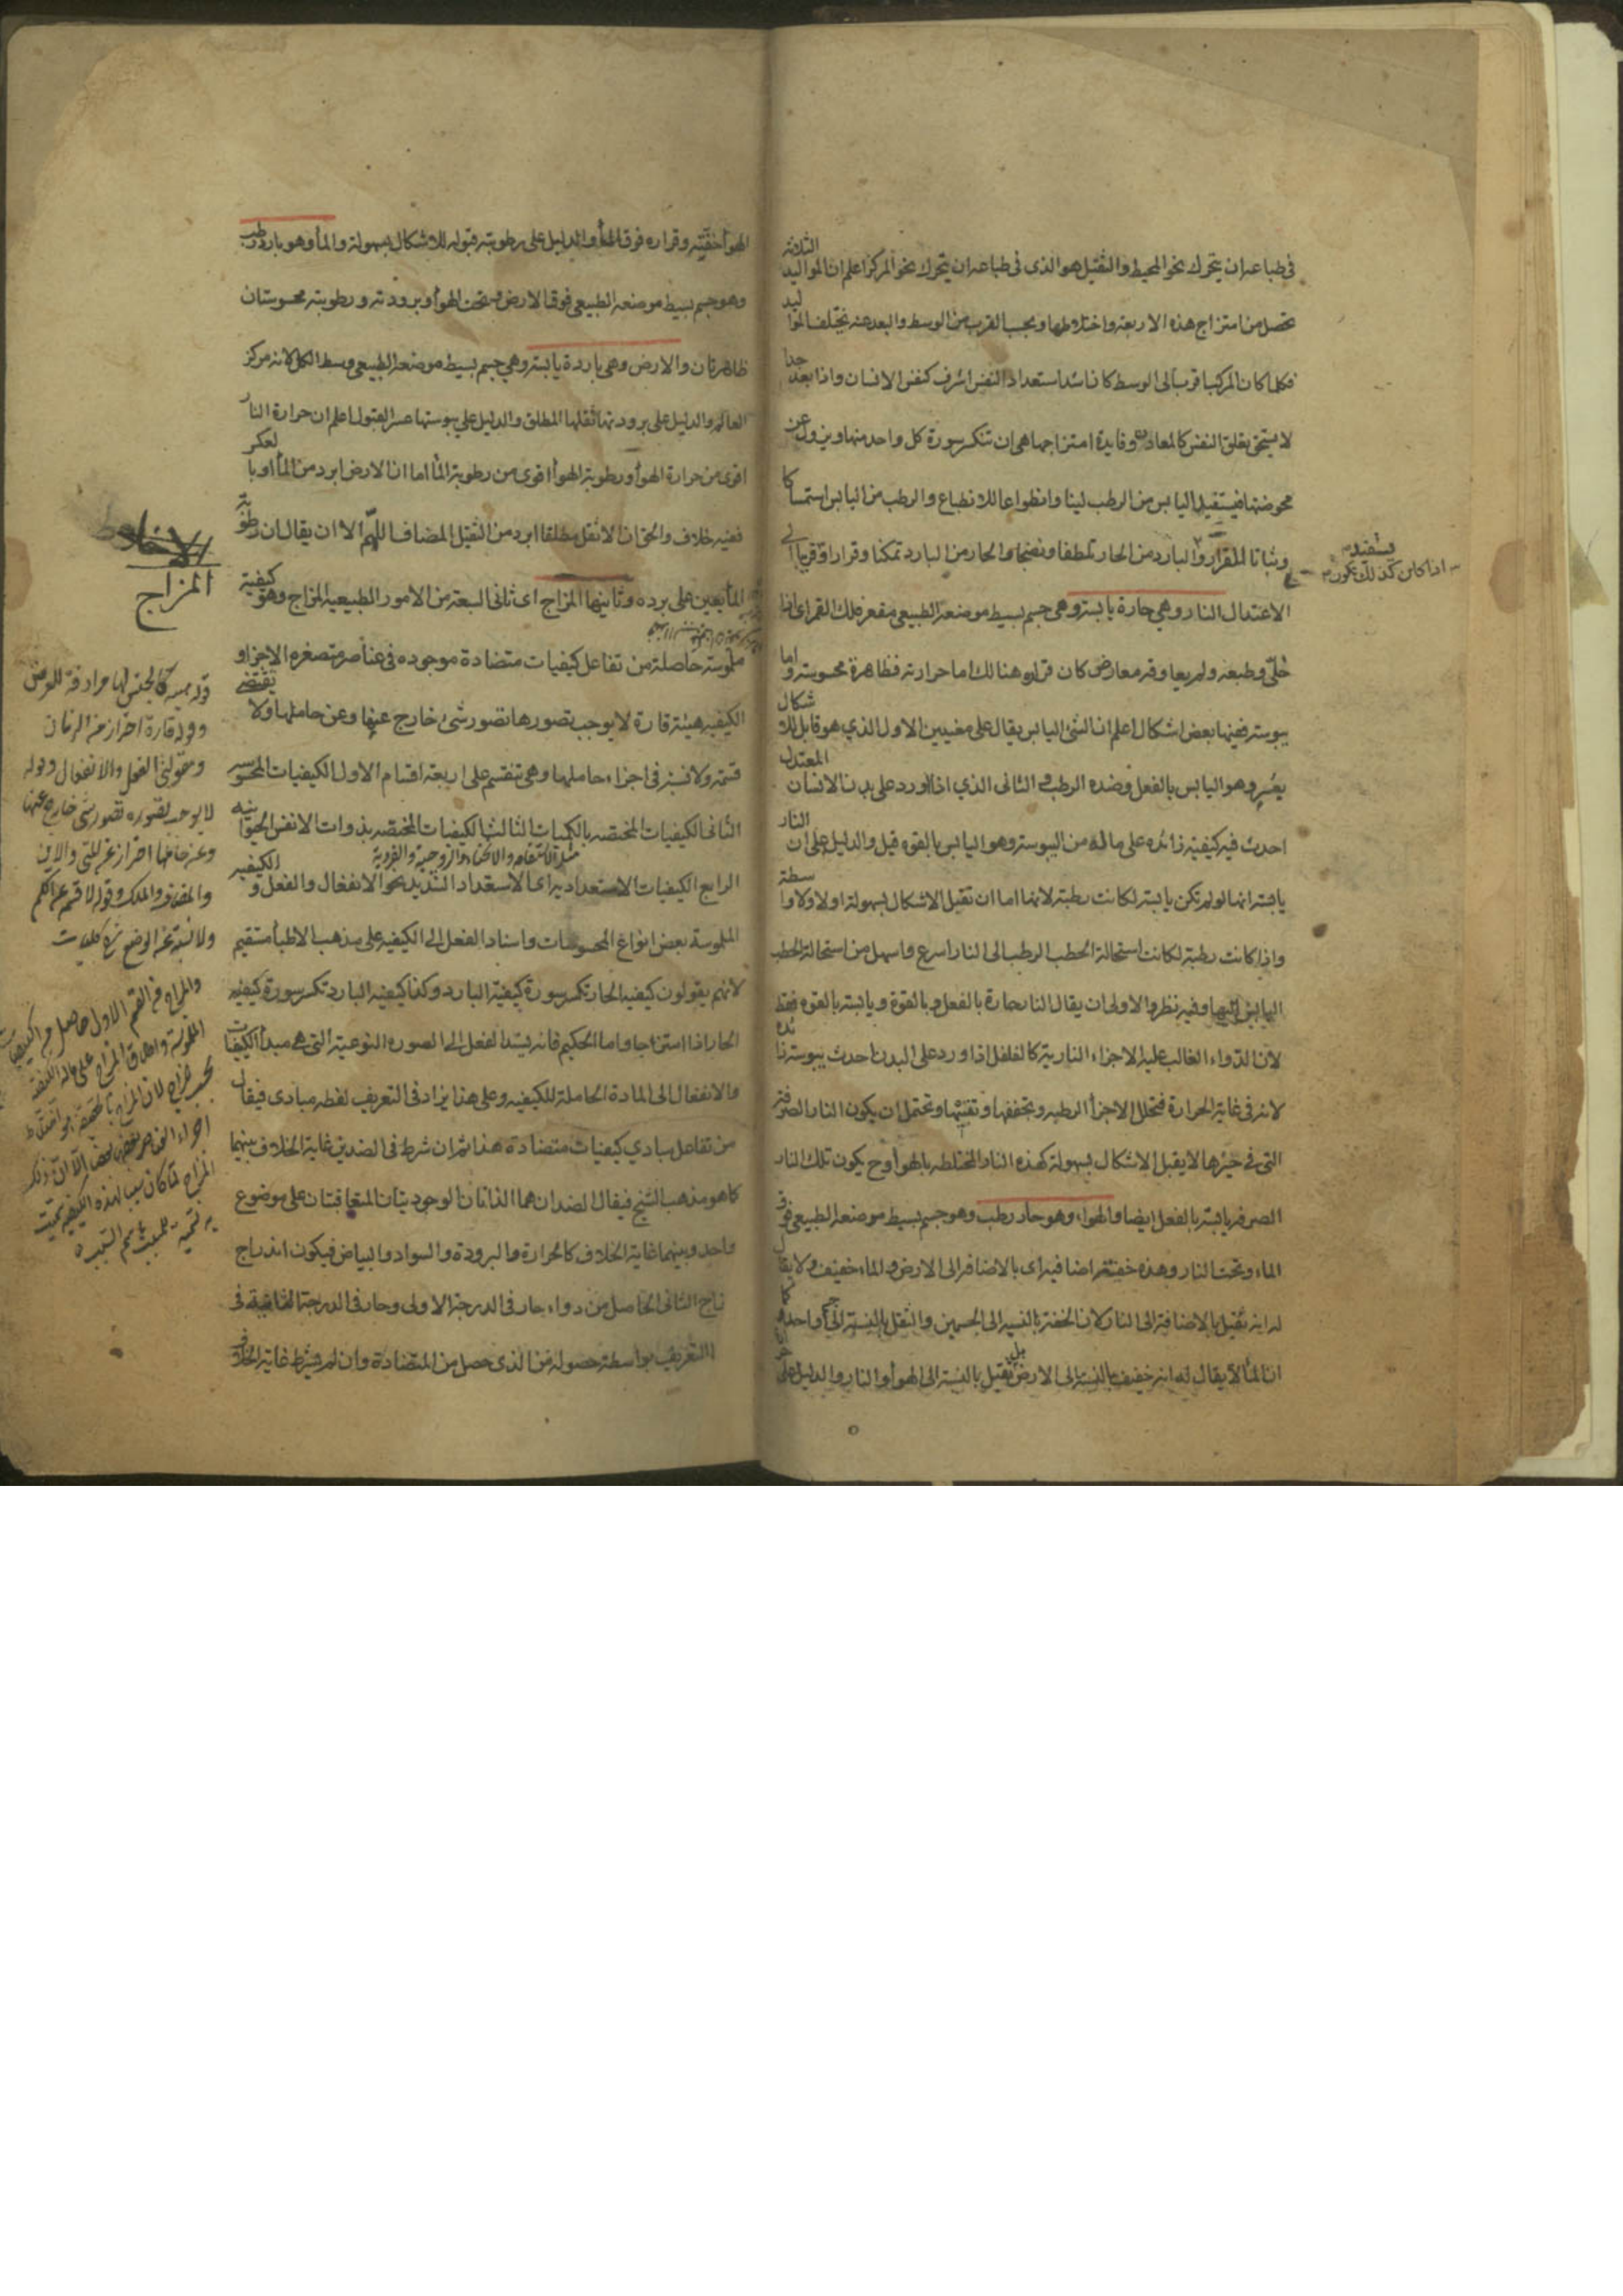 في طباعه ان يتحرك نحو المحيط والثقيل هو الذى فى طباعه ان يتحرك نحو المركز اعلم ان المواليد الثلاثة
تحصل من امتزاج هذه الاربعة واختلاطها وبحسب القرب من الوسط والبعد عنه يختلف المواليد
فكلما كان المركب اقرب الى الوسط كان اشد استعدادا لنفس اشرف كنفس الانسان واذا بعد جدا
لا يستحق تعلق النفس كالمعادن وفايدة امتزاجها هى ان تنكسر سورة كل واحد منها ويزول عن
محوضتها فيستفيد اليابس من الرطب لينا وانطواعا للانطباع والرطب من اليابس استمساكا
وثباتا للقرار والبارد من الحار تلطفا ونضجا والحار من البارد تمكنا وقرارا وقربا الى
الاعتدال النار وهي حارة يابسة وهي جسم بسيط موضعه الطبيعي مقعر فلك القمر اى اذا
خلّي وطبعه ولم يعاوقه معارض كان قراره هنالك اما حرارته فظاهرة محسوسة واما
يبوسته ففيها بعض اشكال اعلم ان الشئ اليابس يقال على معنيين الاول الذي هو قابل للاشكال
بعسر وهو اليابس بالفعل وضده الرطب و الثانى الذي اذا ورد على بدن الانسان المعتدل
احدث فيه كيفية زائده على ماله من اليبوسة وهو اليابس بالقوه قيل والدليل على ان النار
يابسة انها لو لم تكن يابسة لكانت رطبة لانها اما ان تقبل الاشكال بسهولة اولا ولا واسطة
واذا كانت رطبة لكانت استحالة الحطب الرطب الى النار اسرع واسهل من استحالة الحطب
اليابس اليها وفيه نظر والاولى ان يقال النار حارة بالفعل وبالقوة ويابسة بالقوه فقط
لان الدواء الغالب عليه الاجزاء النارية كالفلفل اذا ورد على البدن احدث يبوسة زائده
لانه فى غاية الحرارة فتحلل الاجزأ الرطبه وتجففها وتفنيها وتحتمل ان يكون النار الصرفة
التى فى حيزها لا يقبل الاشكال بسهولة كهذه النار المختلطه بالهوأ وح يكون تلك النار
الصرفه يابسة بالفعل ايضا والهواء وهو حار رطب وهو جسم بسيط موضعه الطبيعى فوق
الماء وتحت النار وهذه خفته اضافيه اى بالاضافه الى الارض والماء خفيف ولا يقال
له انه ثقيل بالاضافة الى النار لان الخفة بالنسبه الى الجسمين والثقل بالنسبة الى واحد كما
ان المأ لا يقال له انه خفيف بالنسبة الى الارض بل ثقيل بالنسبة الى الهوأ والنار والدليل على
يستفيد
اذا كان كذلك يكون
الهوأ خفته وقراره فوق المأ والدليل على رطوبته قبوله للاشكال بسهولة والمأ وهو بارد رطب
وهو جسم بسيط موضعه الطبيعى فوق الارض وتحت الهوأ وبرودته ورطوبته محسوستان
ظاهرتان والارض وهى باردة يابسة وهي جسم بسيط موضعه الطبيعى وسط الكل لانه مركز
العالم والدليل على برودتها ثقلها المطلق والدليل على يبوستها عسر القبول اعلم ان حرارة النار
اقوى من حرارة الهوأ ورطوبة الهوأ اقوى من رطوبة المأ اما ان الارض ابرد من المأ او بالعكس
ففيه خلاف والحق ان الاثقل مطلقا ابرد من الثقيل المضاف اللهم الا ان يقال ان رطوبة
المأ يعين على برده وثانيها المزاج اى ثانى السبعة من الامور الطبيعيه المزاج وهو كيفية
ملموسة حاصلة من تفاعل كيفيات متضادة موجوده فى عناصر متصغره الاجزاء و
الكيفيه هيئة قارة لا يوجب تصورها تصور شئ خارج عنها وعن حاملها ولا يقتضى
قسمة ولا نسبة فى اجزاء حاملها وهى تنقسم على اربعة اقسام الاول الكيفيات المحسوسه
الثانى الكيفيات المختصه بالكميات الثالث الكيفيات المختصه بذوات الانفس الحيوانيه
مثل الاستقامه والانحناء والزوجية والفردية
الرابع الكيفيات الاستعداديه اى الاستعداد الشديد نحو الانفعال والفعل و الكيفيه
الملموسة بعض انواع المحسوسات واسناد الفعل الى الكيفيه على مذهب الاطبأ مستقيم
لانهم يقولون كيفيه الحار تكسر سورة كيفية البارد وكذا كيفيه البارد تكسر سورة كيفيه
الحار اذا امتزاجا واما الحكيم فانه يسند الفعل الى الصوره النوعية التى هى مبدأ الكيفيات
والانفعال الى المادة الحاملة للكيفيه وعلى هذا يزاد فى التعريف لفظه مبادى فيقال
من تفاعل مبادي كيفيات متضادة هذا ثم ان شرط فى الضدين غاية الخلاف بينهما
كما هو مذهب الشيخ فيقال الضدان هما الذاتان الوجوديتان المتعاقبتان على موضوع
واحد وبينهما غاية الخلاف كالحرارة والبرودة والسواد والبياض فيكون اندراج
المزاج الثانى الحاصل من دواء حار فى الدرجة الاولى وحار فى الدرجة الثانية فى
التعريف بواسطة حصوله من الذى حصل من المتضادة وان لم يشترط غاية الخلاف
المزاج
قوله هيئة كالجنس لها مرادفة للعرض
وقوله قارة احتراز عن الزمان
ومقولتى الفعل والانفعال وقوله
لا يوجب تصوره تصور شئ خارج عنها
وعن حاملها احتراز عن متى والاين
والمضاف والملك وقوله لا قسمة عن الكم
ولا نسبة عن الوضع شرح كليات
والمزاج فى القسم الاول حاصل من الكيفيات
الملموسة واطلاق المزاج على هذه الكيفية
اجزاء العناصر بعضها ببعض الا ان ذلك
المزاج لما كان سببا لهذه الكيفيه سميت
به تسمية للمسبب باسم السبب